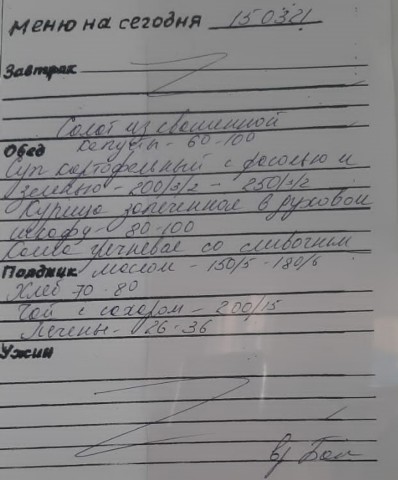 Меню на сегодня 150321
Завтрак
Салат из квашенной
Обед капусты - 60-100
Суп картофельный с фасолью и
зеленью - 200/3/2 - 250/3/2
Курица запеченное в духовом
шкафу - 80-100
Каша гречневае со сливочным
Полдник маслом - 150/5 - 180/6
Хлеб 70-80
Чай с сахаром - 200/15
Печень - 26-36
Ужин